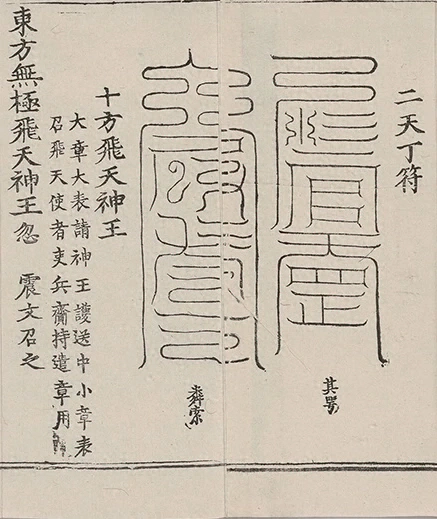 二天丁符
十方飛天神王
大章大表請神王護送中小章表
召飛天使者吏兵齎持遣章用
東方無極飛天神王忽　震文召之